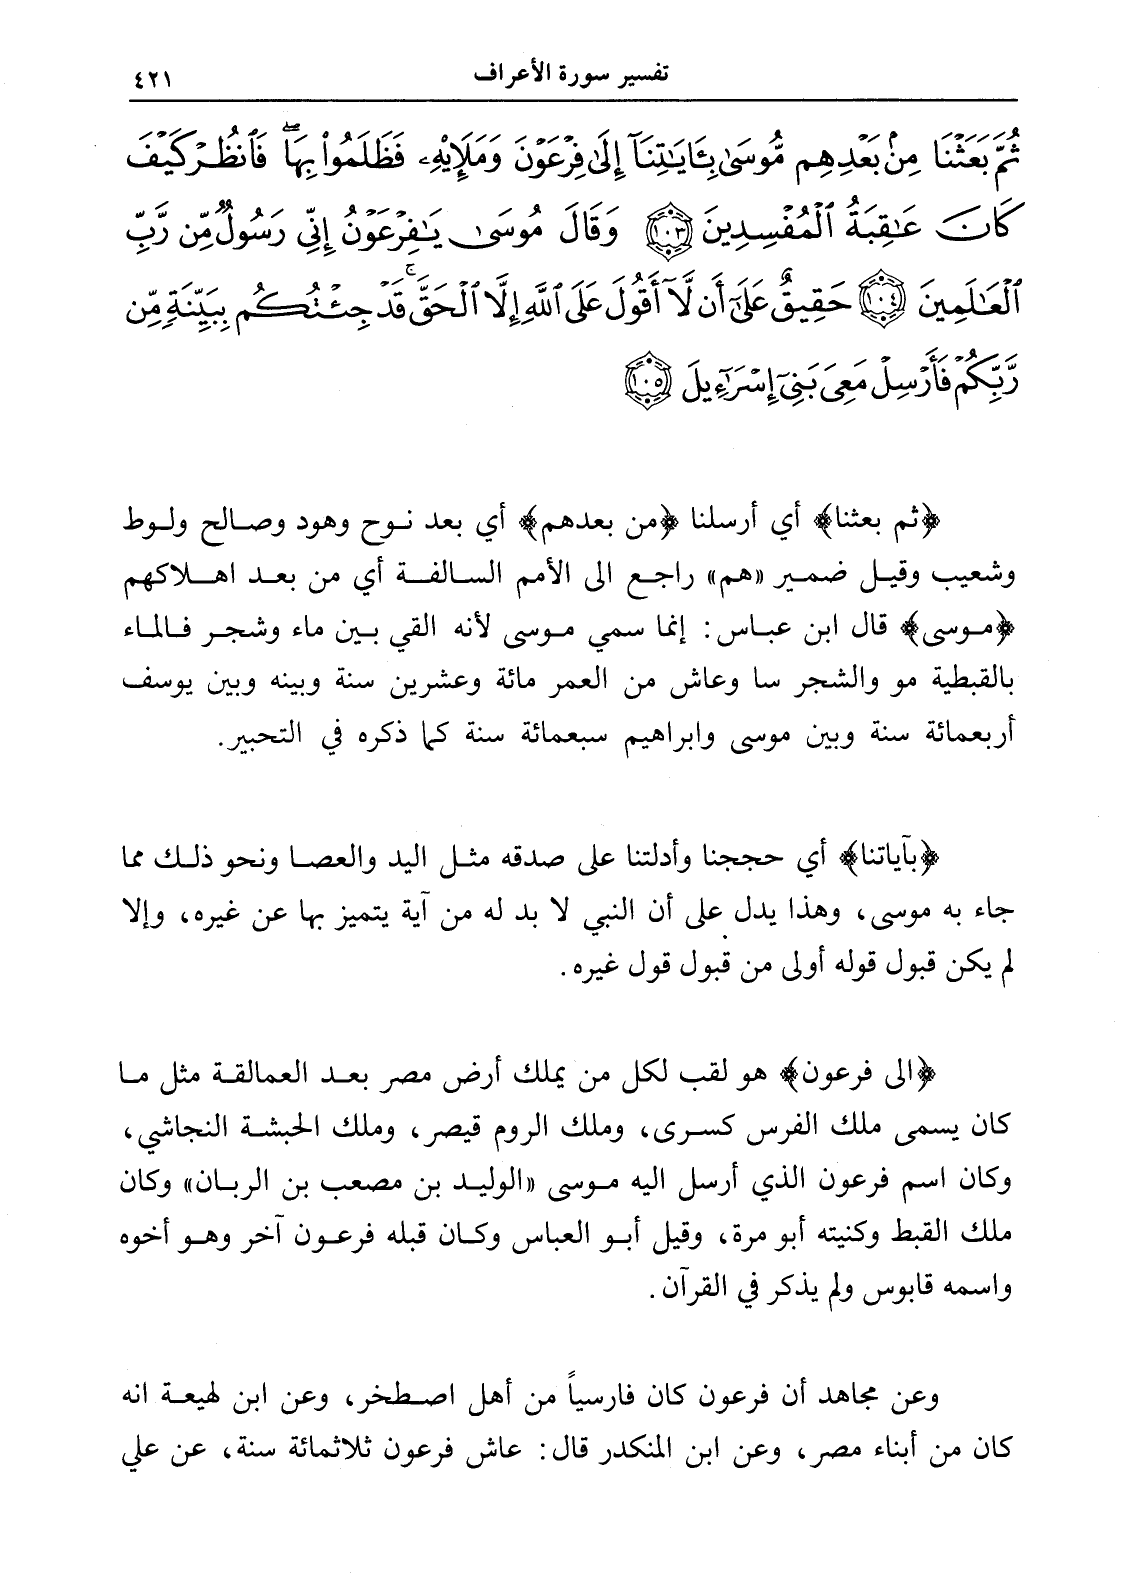 تفسير سورة الأعراف ٤٢١
ثُمَّ بَعَثْنَا مِنۢ بَعْدِهِم مُّوسَىٰ بِـَٔايَـٰتِنَآ إِلَىٰ فِرْعَوْنَ وَمَلَإِي۟هِۦ فَظَلَمُوا۟ بِهَا ۖ فَٱنظُرْ كَيْفَ
كَانَ عَـٰقِبَةُ ٱلْمُفْسِدِينَ ١٠٣ وَقَالَ مُوسَىٰ يَـٰفِرْعَوْنُ إِنِّى رَسُولٌ مِّن رَّبِّ
ٱلْعَـٰلَمِينَ ١٠٤ حَقِيقٌ عَلَىٰٓ أَن لَّآ أَقُولَ عَلَى ٱللَّهِ إِلَّا ٱلْحَقَّ ۚ قَدْ جِئْتُكُم بِبَيِّنَةٍ مِّن
رَّبِّكُمْ فَأَرْسِلْ مَعِىَ بَنِىٓ إِسْرَٰٓءِيلَ ١٠٥
﴿ثم بعثنا﴾ أي أرسلنا ﴿من بعدهم﴾ أي بعد نوح وهود وصالح ولوط
وشعيب وقيل ضمير «هم» راجع الى الأمم السالفة أي من بعد اهلاكهم
﴿موسى﴾ قال ابن عباس: إنما سمي موسى لأنه القي بين ماء وشجر فالماء
بالقبطية مو والشجر سا وعاش من العمر مائة وعشرين سنة وبينه وبين يوسف
أربعمائة سنة وبين موسى وابراهيم سبعمائة سنة كما ذكره في التحبير.
﴿بآياتنا﴾ أي حججنا وأدلتنا على صدقه مثل اليد والعصا ونحو ذلك مما
جاء به موسى، وهذا يدل على أن النبي لا بد له من آية يتميز بها عن غيره، وإلا
لم يكن قبول قوله أولى من قبول قول غيره.
﴿الى فرعون﴾ هو لقب لكل من يملك أرض مصر بعد العمالقة مثل ما
كان يسمى ملك الفرس كسرى، وملك الروم قيصر، وملك الحبشة النجاشي،
وكان اسم فرعون الذي أرسل اليه موسى «الوليد بن مصعب بن الربان» وكان
ملك القبط وكنيته أبو مرة، وقيل أبو العباس وكان قبله فرعون آخر وهو أخوه
واسمه قابوس ولم يذكر في القرآن.
وعن مجاهد أن فرعون كان فارسياً من أهل اصطخر، وعن ابن لهيعة انه
كان من أبناء مصر، وعن ابن المنكدر قال: عاش فرعون ثلاثمائة سنة، عن علي